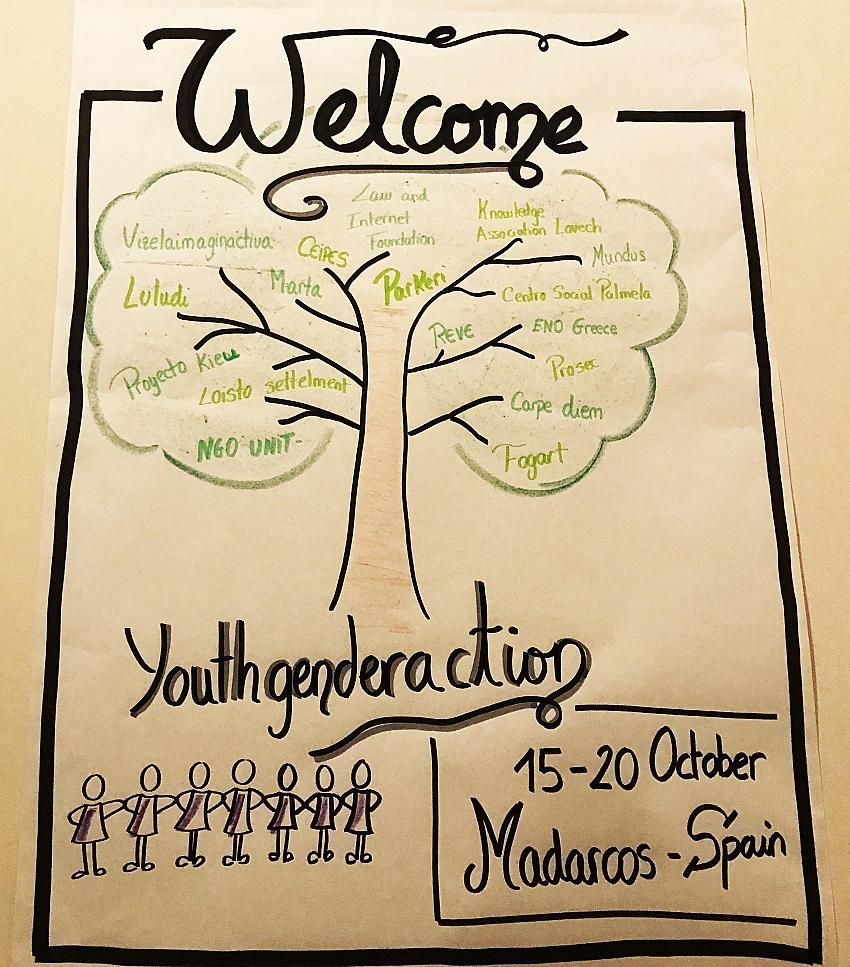 Welcome
Law and
Internet
Foundation
Knowledge
Association Lovech
Vizelaimaginactiva
CEIPES
Mundus
Luludi
Marta
Parkeri
Centro Social Palmela
REVE
ENO Greece
Proyecto Kieu
Prosec
Loisto settelment
Carpe diem
NGO UNIT-
Fogart
Youthgenderaction
15-20 October
Madarcos - Spain